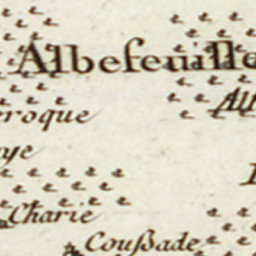 Albefeuille
Alb
eroque
aye
Charie
Coußade